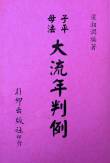 梁湘潤編著
子平
母法
大流年判例
行卯出版社印行